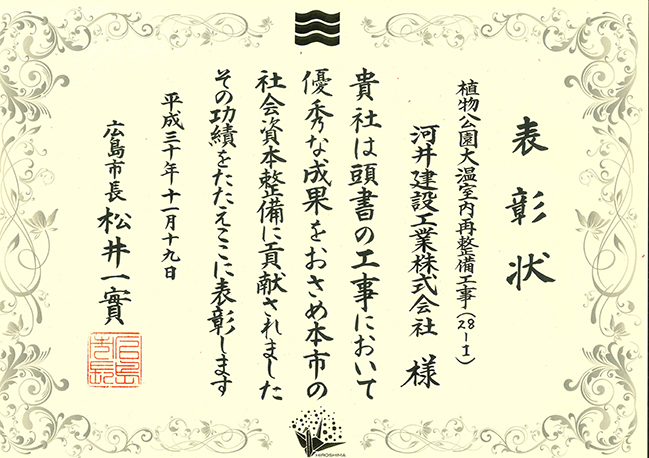 表彰状
植物公園大温室内再整備工事(28-1)
河井建設工業株式会社 様
貴社は頭書の工事において
優秀な成果をおさめ本市の
社会資本整備に貢献されました
その功績をたたえここに表彰します
平成三十年十一月十九日
広島市長 松井一實
広島市長
HIROSHIMA